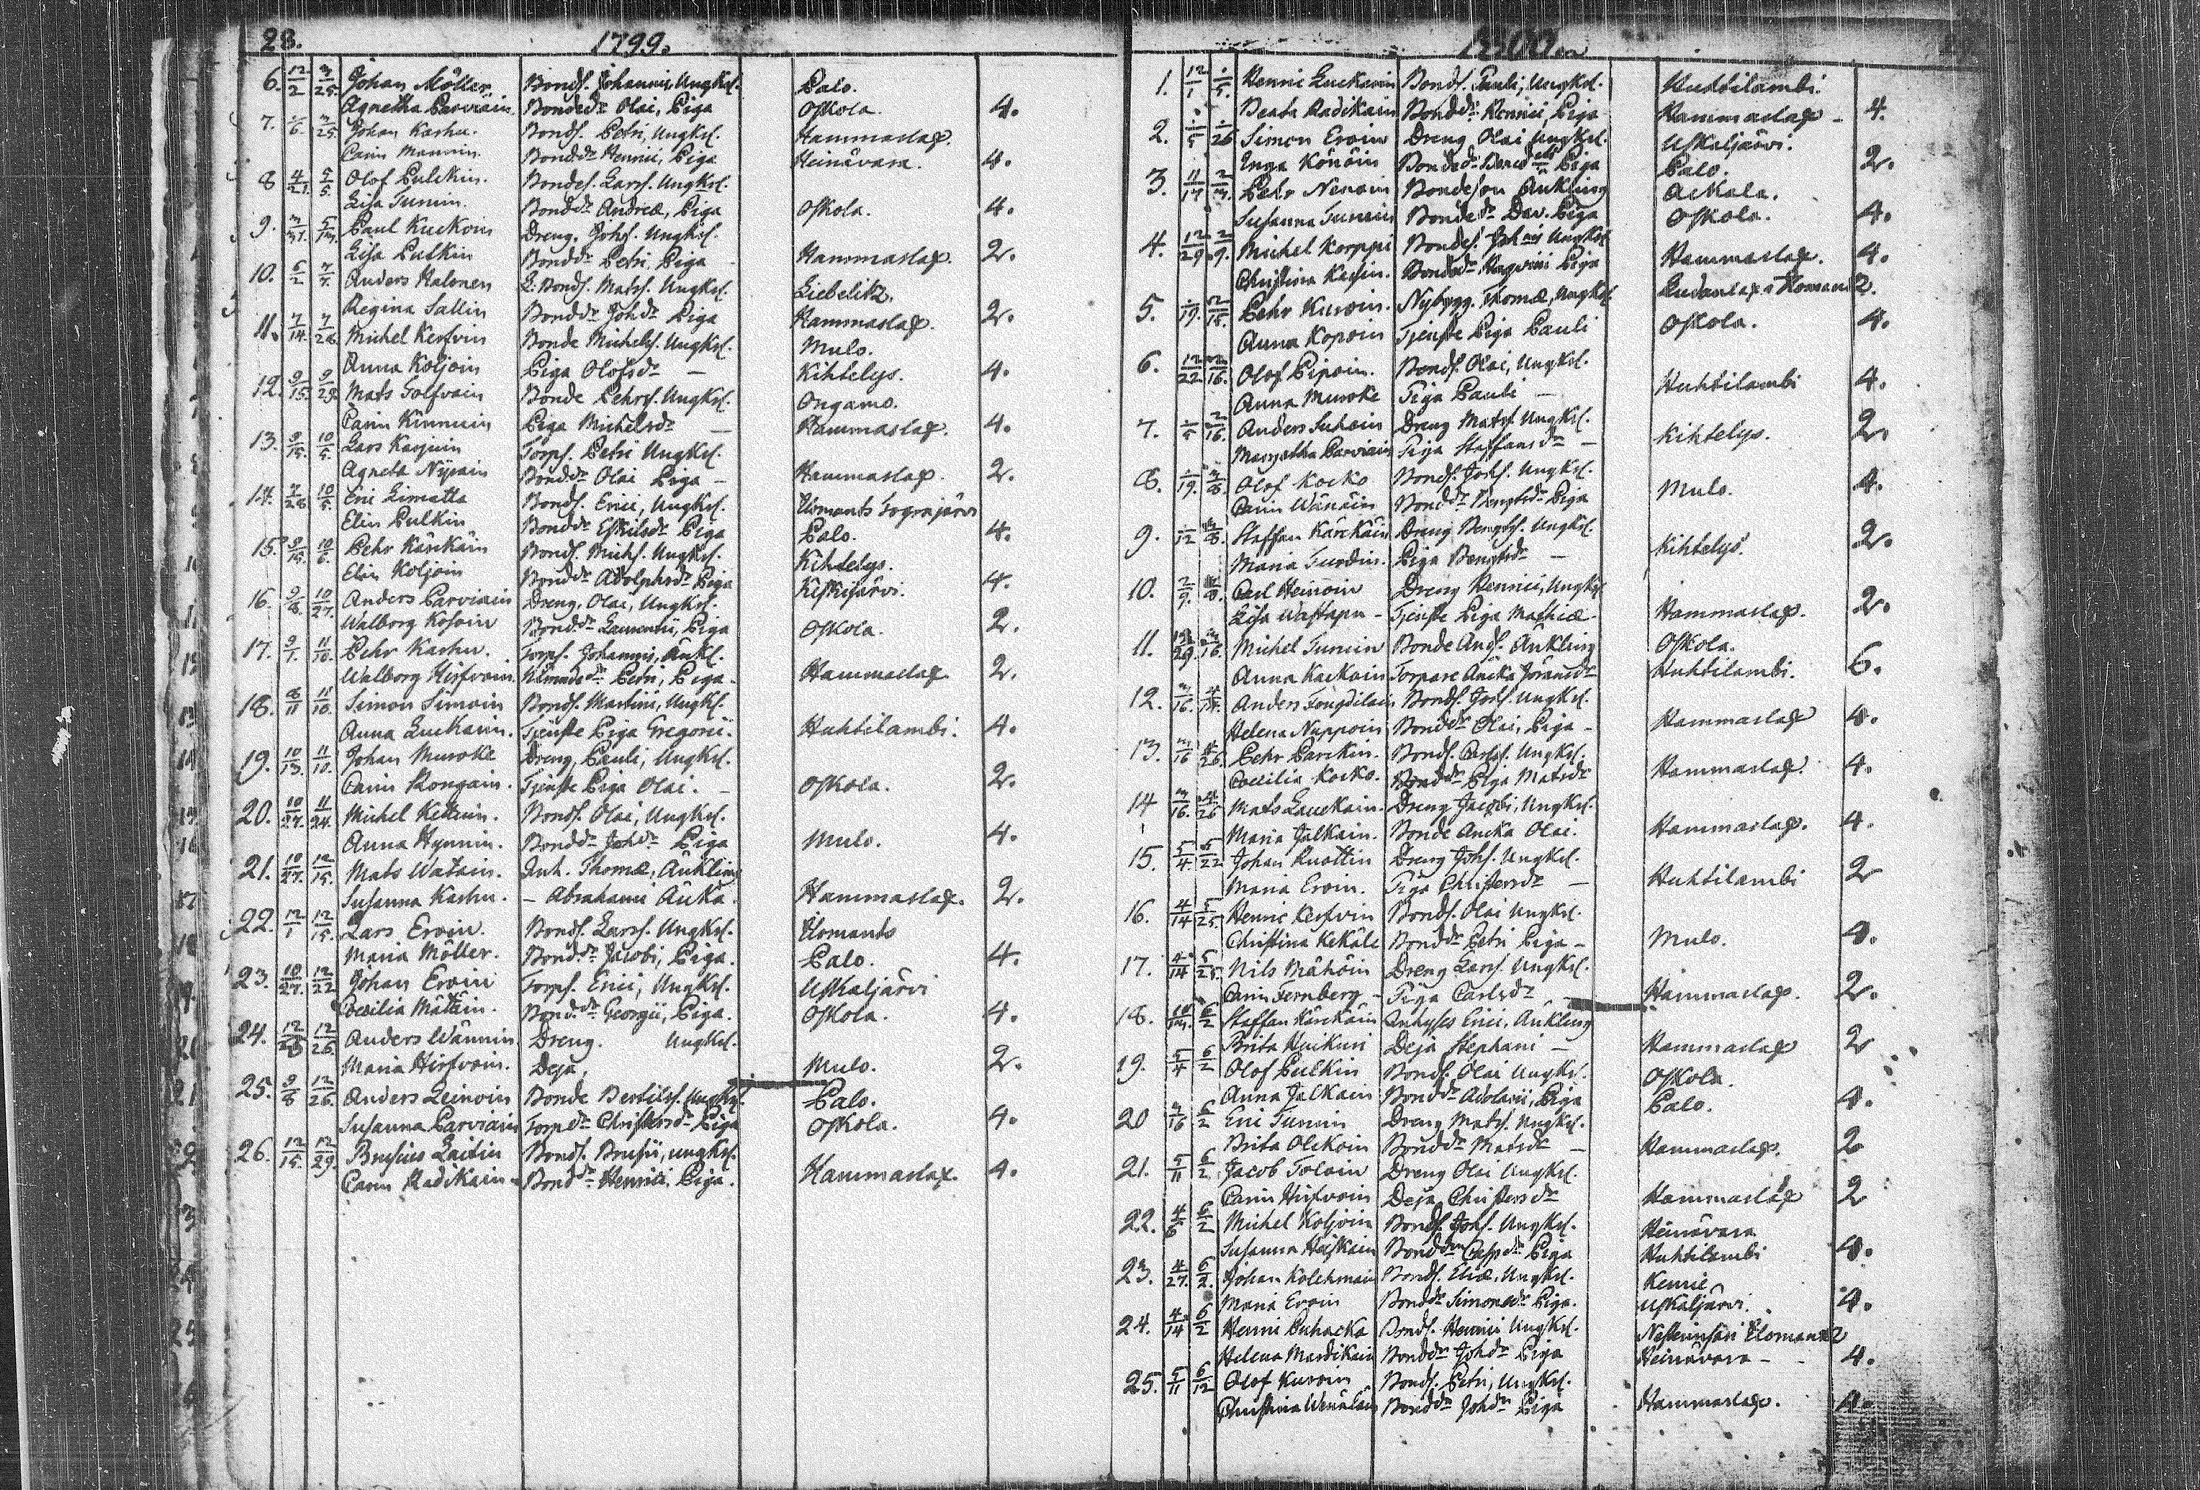 28. 1799.
6. 12/2 3/25. Johan Möller. Bonds. Johannis, Ungkrl. Palo.
Agnetha Parviain. Bondedr Olai, Piga Oskola. 4.
7. 1/6. 3/25 Johan Karhu. Bonds. Petri, Ungkrl. Hammaslax.
Carin Mannin. Bonddr Henrici, Piga Heinävara. 4.
8 4/21. 5/5. Olof Pulckin. Bondes. Larss. Ungkrl.
Lisa Turuin. Bonddr Andreæ, Piga Oskola. 4.
9. 3/31. 5/13. Paul Kuckoin Dreng. Johs. Ungkrl.
Lisa Pulkin Bonddr Petri, Piga Hammaslax. 2.
10. 6/2 7/7. Anders Halonen L. Bonds. Matss. Ungkrl. Liebelitz.
Regina Sallin Bonddr Johdr Piga Hammaslax. 2.
11. 7/14. 7/28. Michel Kerfvin Bonde Michelss. Ungkrl. Mulo.
Anna Koljoin Piga Olofsdr — Kihtelys. 4.
12. 9/15. 9/29. Mats Tolfvain Bonde Pehrss. Ungkrl. Ongamo.
Carin Kinnuin Piga Michelsdr — Hammaslax. 4.
13. 9/15. 10/5. Lars Karjuin Torps. Petri Ungkrl.
Agneta Nysain Bonddr Olai Piga — Hammaslax. 2.
14. 7/28 10/5. Eric Limatta Bonds. Erici, Ungkrl. Ilomants Sognajärvi
Elin Pulkin Bonddr Eskilsdr Piga Palo. 4.
15. 9/15. 10/6. Pehr Kärckäin Bonds. Michs. Ungks. Kihtelys.
Elin Koljoin Bonddr Adolphsdr Piga Kiskisärvi. 4.
16. 9/8. 10/27. Anders Parviain Dreng, Olai, Ungkrl.
Walborg Kosoin Bonddr Laurentii, Piga Oskola. 2.
17. 9/1. 11/10. Pehr Karhu. Torps. Johannis, Änkl.
Walborg Hirfvoin. Petri, Piga. Hammaslax. 2.
18. 8/11 11/10. Simon Simoin Bonds. Martini, Ungkl.
Anna Luckain. Tjenste Piga Gregorii. Huhtilambi. 4.
19. 10/13. 11/10. Johan Muroke Dreng, Pauli, Ungkrl.
Carin Rongain. Tjenste Piga Olai. — Oskola. 2.
20. 10/27. 11/24. Michel Kettuin. Bonds. Olai, Ungkrl.
Anna Hynnin. Bonddr Johdr Piga Mulo. 4.
21. 10/27. 12/15. Mats Watain. Inh. Thomæ, Änkling
Susanna Karhu. — Abrahami Änka. Hammaslax. 2.
22. 12/1 12/15. Lars Eroin. Bonds. Larss. Ungkrl. Ilomants
Maria Möller. Bonddr Jacobi, Piga. Palo. 4.
23. 10/27. 12/22 Johan Eroin Torps. Erici, Ungkrl. Uskaljärvi
Coecilia Mätäin. Bonddr Georgii, Piga. Oskola. 4.
24. 12/26 12/26. Anders Wännin Dreng. Ungkrl.
Maria Hirfvoin. Deja, Mulo. 2.
25. 9/8 12/26. Anders Leinoin Bonde Bertilss. Ungkrl. Palo.
Susanna Parviain Torpdr Christersdr Piga Oskola. 4.
26. 12/15. 12/29. Brusius Laitin Bonds. Brusii, ungkrl.
Carin Radikain Bonddr Henrici, Piga. Hammaslax. 4.
1800
1. 12/1 1/5. Henric Luckain Bonds. Pauli, Ungkrl. Huhtilambi.
Beata Radikain Bonddr Henrici, Piga Hammaslax — 4.
2. 1/5 1/26 Simon Eroin Dreng Olai Ungkrl. Uskaljärvi.
Inga Könöin Bondedr Piga Palo. 2.
3. 11/17 2/3. Pehr Nenoin Bondeson Änkling Ackala.
Susanna Turuin Bondedr Dav. Piga Oskola. 4.
4. 12/29 2/9. Michel Korppi Bondes. Johnis Ungkrl
Christina Karhin. Bonddr Piga Hammaslax. 4.
5. 1/19. 2/15. Pehr Kuroin. Nybygg. Thomæ, Ungkrl. 2.
Anna Kopoin Tjenste Piga Pauli Oskola. 4.
6. 12/22. 2/16. Olof Pipoin. Bonds. Olai, Ungkrl.
Anna Muroke Piga Pauli — Huhtilambi 4.
7. 1/5 2/16. Anders Suhoin Dreng Matss Ungkrl.
Margetha Parviain Piga Staffansdr — Kihtelys. 2.
8. 1/19. 3/8. Olof Kocko Bonds. Johs. Ungkrl.
Carin Wänäin Bonddr Bengtsdr Piga Mulo. 4.
9. 1/12 3/8. Staffan Kärckäin Dreng Bengtss. Ungkrl.
Maria Turdin. Piga Bengtsdr — Kihtelys. 2.
10. 2/9. 3/8. Carl Heinoin Dreng Henrici, Ungkrl
Lisa Wattapu — Tjenste Piga Mathiæ — Hammaslax. 2.
11. 12/29. 3/16 Michel Turuin Bonde Ands. Änkling Oskola.
Anna Kackain Torpare Äncka Göransdr Huhtilambi. 6.
12. 3/16. 4/14. Anders Bonds. Johs. Ungkrl.
Helena Nuppoin Bonddr Olai, Piga — Hammaslax 4.
13. 3/16 4/26. Pehr Parckin. Bonds. Carlss. Ungkrl.
Coecilia Kocko. Bonddr Piga Matsdr Hammaslax. 4.
14 3/16. 4/26 Mats Lauckain. Dreng Jacobi, Ungkrl.
Maria Jalkain. Bonde Äncka Olai. Hammaslax. 4.
15. 5/4 5/22 Johan Ruottin Dreng Johs. Ungkrl.
Maria Eroin. Piga Christersdr — Huhtilambi 2
16. 4/14 5/25. Henric Kerfvin Bonds. Olai Ungkrl.
Christina Kekäle Bonddr Petri Piga — Mulo. 4.
17. 4/14 5/25. Nils Mähöin Dreng Larss. Ungkrl.
Carin Fernberg — Piga Carlsdr — Hammaslax. 2.
18. 10/13. 6/2 Staffan Kärckäin Inhyses Erici, Änkling
Brita Huckuri Deja Stephani — Hammaslax 2
19. 5/4 6/2 Olof Pulkin Bonds. Olai Ungkrl. Oskola.
Anna Jalkain Bonddr Adolarii, Piga Palo. 4.
20 3/16 6/2 Eric Turuin Dreng Matss. Ungkrl.
Brita Olckoin Bonddr Matsdr — Hammaslax. 2
21. 5/11 6/2 Jacob Tolain Dreng Olai Ungkrl.
Carin Hirfvoin Deja Christersdr Hammaslax 2
22. 4/6 6/2 Michel Koljoin Bonds. Johs. Ungkrl. Heinävara
Susanna Häyskain Bonddr Piga Huhtilambi 4.
23. 4/27. 6/2. Johan Kolehmain Bonds. Eliæ, Ungkrl. Kenrie
Maria Eroin Bonddr Simonsdr Piga. Uskaljärvi. 4.
24. 4/14 6/2 Henric Puhacka Bonds. Henrici Ungkrl. Ilomants 2
Helena Mardikain Bonddr Johdr Piga Heinävara — 4.
25. 5/11 6/12 Olof Kuroin Bonds. Petri, Ungkrl.
Christina Wenäläin Bonddr Johdr Piga Hammaslax. 4.